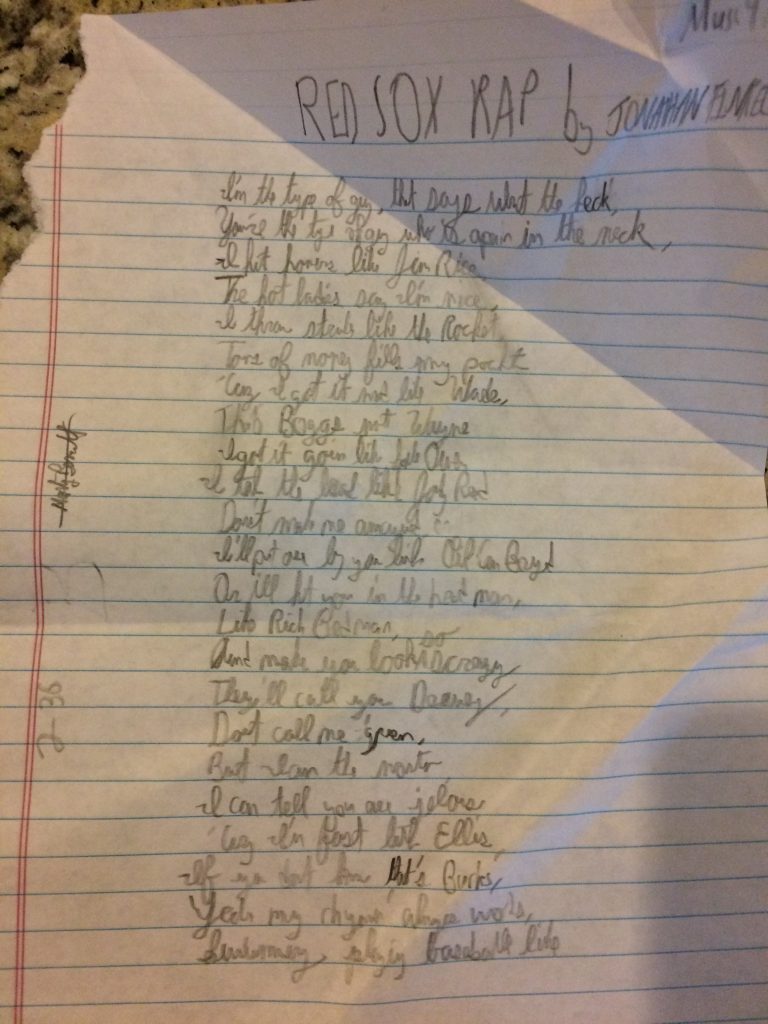 RED SOX RAP by JONATHAN
I'm the type of guy, that says what the heck,
You're the type of guy who is a pain in the neck,
I hit homers like Jim Rice
The hot ladies say I'm nice,
I throw steaks like the Rocket,
Tons of money fills my pockt
'Cuz I got it mad like Wade,
That's Boggs not Wayne
I got it goin like
I the like Jody Reed
Don't make me annoyed
I'll put one by you like Oil Can Boyd
Or i'll hit you in the head man,
Like Rich Gedman,
And make you look so crazy
They'll call you
Don't call me
But I am the
I can tell you are jelous
'Cuz I'm fast like Ellis,
If you don't know that's Burks,
Yeah my rhyme always works,
playing baseball like
2-36